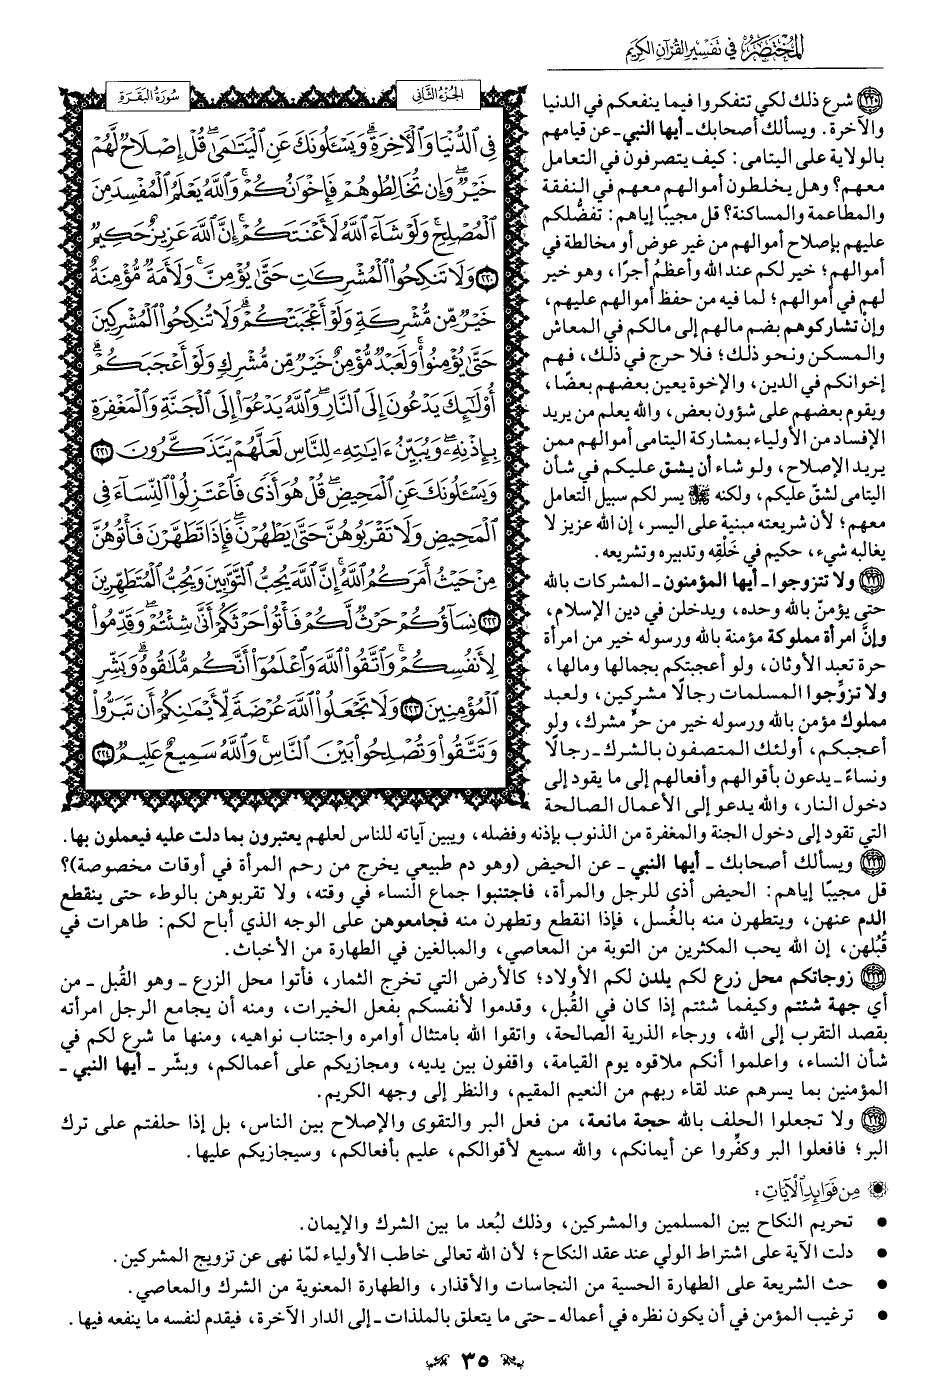 المختصر في تفسير القرآن الكريم
سورة البقرة
الجزء الثاني
فِي الدُّنْيَا وَالْآخِرَةِ ۗ وَيَسْأَلُونَكَ عَنِ الْيَتَامَىٰ ۖ قُلْ إِصْلَاحٌ لَّهُمْ
خَيْرٌ ۖ وَإِن تُخَالِطُوهُمْ فَإِخْوَانُكُمْ ۚ وَاللَّهُ يَعْلَمُ الْمُفْسِدَ مِنَ
الْمُصْلِحِ ۚ وَلَوْ شَاءَ اللَّهُ لَأَعْنَتَكُمْ ۚ إِنَّ اللَّهَ عَزِيزٌ حَكِيمٌ
٢٢٠ وَلَا تَنكِحُوا الْمُشْرِكَاتِ حَتَّىٰ يُؤْمِنَّ ۚ وَلَأَمَةٌ مُّؤْمِنَةٌ
خَيْرٌ مِّن مُّشْرِكَةٍ وَلَوْ أَعْجَبَتْكُمْ ۗ وَلَا تُنكِحُوا الْمُشْرِكِينَ
حَتَّىٰ يُؤْمِنُوا ۚ وَلَعَبْدٌ مُّؤْمِنٌ خَيْرٌ مِّن مُّشْرِكٍ وَلَوْ أَعْجَبَكُمْ ۗ
أُولَٰئِكَ يَدْعُونَ إِلَى النَّارِ ۖ وَاللَّهُ يَدْعُو إِلَى الْجَنَّةِ وَالْمَغْفِرَةِ
بِإِذْنِهِ ۖ وَيُبَيِّنُ آيَاتِهِ لِلنَّاسِ لَعَلَّهُمْ يَتَذَكَّرُونَ ٢٢١
وَيَسْأَلُونَكَ عَنِ الْمَحِيضِ ۖ قُلْ هُوَ أَذًى فَاعْتَزِلُوا النِّسَاءَ فِي
الْمَحِيضِ وَلَا تَقْرَبُوهُنَّ حَتَّىٰ يَطْهُرْنَ ۖ فَإِذَا تَطَهَّرْنَ فَأْتُوهُنَّ
مِنْ حَيْثُ أَمَرَكُمُ اللَّهُ ۚ إِنَّ اللَّهَ يُحِبُّ التَّوَّابِينَ وَيُحِبُّ الْمُتَطَهِّرِينَ
٢٢٢ نِسَاؤُكُمْ حَرْثٌ لَّكُمْ فَأْتُوا حَرْثَكُمْ أَنَّىٰ شِئْتُمْ ۖ وَقَدِّمُوا
لِأَنفُسِكُمْ ۚ وَاتَّقُوا اللَّهَ وَاعْلَمُوا أَنَّكُم مُّلَاقُوهُ ۗ وَبَشِّرِ
الْمُؤْمِنِينَ ٢٢٣ وَلَا تَجْعَلُوا اللَّهَ عُرْضَةً لِّأَيْمَانِكُمْ أَن تَبَرُّوا
وَتَتَّقُوا وَتُصْلِحُوا بَيْنَ النَّاسِ ۗ وَاللَّهُ سَمِيعٌ عَلِيمٌ ٢٢٤
٢٢٠ شرع ذلك لكي تتفكروا فيما ينفعكم في الدنيا
والآخرة. ويسألك أصحابك - أيها النبي - عن قيامهم
بالولاية على اليتامى: كيف يتصرفون في التعامل
معهم؟ وهل يخلطون أموالهم معهم في النفقة
والمطاعمة والمساكنة؟ قل مجيبًا إياهم: تفضُّلكم
عليهم بإصلاح أموالهم من غير عوض أو مخالطة في
أموالهم؛ خير لكم عند الله وأعظمُ أجرًا، وهو خير
لهم في أموالهم؛ لما فيه من حفظ أموالهم عليهم،
وإنْ تشاركوهم بضم مالهم إلى مالكم في المعاش
والمسكن ونحو ذلك؛ فلا حرج في ذلك، فهم
إخوانكم في الدين، والإخوة يعين بعضهم بعضًا،
ويقوم بعضهم على شؤون بعض، والله يعلم من يريد
الإفساد من الأولياء بمشاركة اليتامى أموالهم ممن
يريد الإصلاح، ولو شاء أن يشق عليكم في شأن
اليتامى لشقّ عليكم، ولكنه ﷻ يسر لكم سبيل التعامل
معهم؛ لأن شريعته مبنية على اليسر، إن الله عزيز لا
يغالبه شيء، حكيم في خَلْقِه وتدبيره وتشريعه.
٢٢١ ولا تتزوجوا - أيها المؤمنون - المشركات بالله
حتى يؤمنّ بالله وحده، ويدخلن في دين الإسلام،
وإنَّ امرأة مملوكة مؤمنة بالله ورسوله خير من امرأة
حرة تعبد الأوثان، ولو أعجبتكم بجمالها ومالها،
ولا تزوِّجوا المسلمات رجالًا مشركين، ولعبد
مملوك مؤمن بالله ورسوله خير من حرٍّ مشرك، ولو
أعجبكم، أولئك المتصفون بالشرك - رجالًا
ونساءً - يدعون بأقوالهم وأفعالهم إلى ما يقود إلى
دخول النار، والله يدعو إلى الأعمال الصالحة
التي تقود إلى دخول الجنة والمغفرة من الذنوب بإذنه وفضله، ويبين آياته للناس لعلهم يعتبرون بما دلت عليه فيعملون بها.
٢٢٢ ويسألك أصحابك - أيها النبي - عن الحيض (وهو دم طبيعي يخرج من رحم المرأة في أوقات مخصوصة)؟
قل مجيبًا إياهم: الحيض أذي للرجل والمرأة، فاجتنبوا جماع النساء في وقته، ولا تقربوهن بالوطء حتى ينقطع
الدم عنهن، ويتطهرن منه بالغُسل، فإذا انقطع وتطهرن منه فجامعوهن على الوجه الذي أباح لكم: طاهرات في
قُبُلهن، إن الله يحب المكثرين من التوبة من المعاصي، والمبالغين في الطهارة من الأخباث.
٢٢٣ زوجاتكم محل زرع لكم يلدن لكم الأولاد؛ كالأرض التي تخرج الثمار، فأتوا محل الزرع - وهو القُبل - من
أي جهة شئتم وكيفما شئتم إذا كان في القُبل، وقدموا لأنفسكم بفعل الخيرات، ومنه أن يجامع الرجل امرأته
بقصد التقرب إلى الله، ورجاء الذرية الصالحة، واتقوا الله بامتثال أوامره واجتناب نواهيه، ومنها ما شرع لكم في
شأن النساء، واعلموا أنكم ملاقوه يوم القيامة، واقفون بين يديه، ومجازيكم على أعمالكم، وبشّر - أيها النبي -
المؤمنين بما يسرهم عند لقاء ربهم من النعيم المقيم، والنظر إلى وجهه الكريم.
٢٢٤ ولا تجعلوا الحلف بالله حجة مانعة، من فعل البر والتقوى والإصلاح بين الناس، بل إذا حلفتم على ترك
البر؛ فافعلوا البر وكفِّروا عن أيمانكم، والله سميع لأقوالكم، عليم بأفعالكم، وسيجازيكم عليها.
من فوائد الآيات:
• تحريم النكاح بين المسلمين والمشركين، وذلك لبُعد ما بين الشرك والإيمان.
• دلت الآية على اشتراط الولي عند عقد النكاح؛ لأن الله تعالى خاطب الأولياء لمّا نهى عن تزويج المشركين.
• حث الشريعة على الطهارة الحسية من النجاسات والأقذار، والطهارة المعنوية من الشرك والمعاصي.
• ترغيب المؤمن في أن يكون نظره في أعماله - حتى ما يتعلق بالملذات - إلى الدار الآخرة، فيقدم لنفسه ما ينفعه فيها.
٣٥